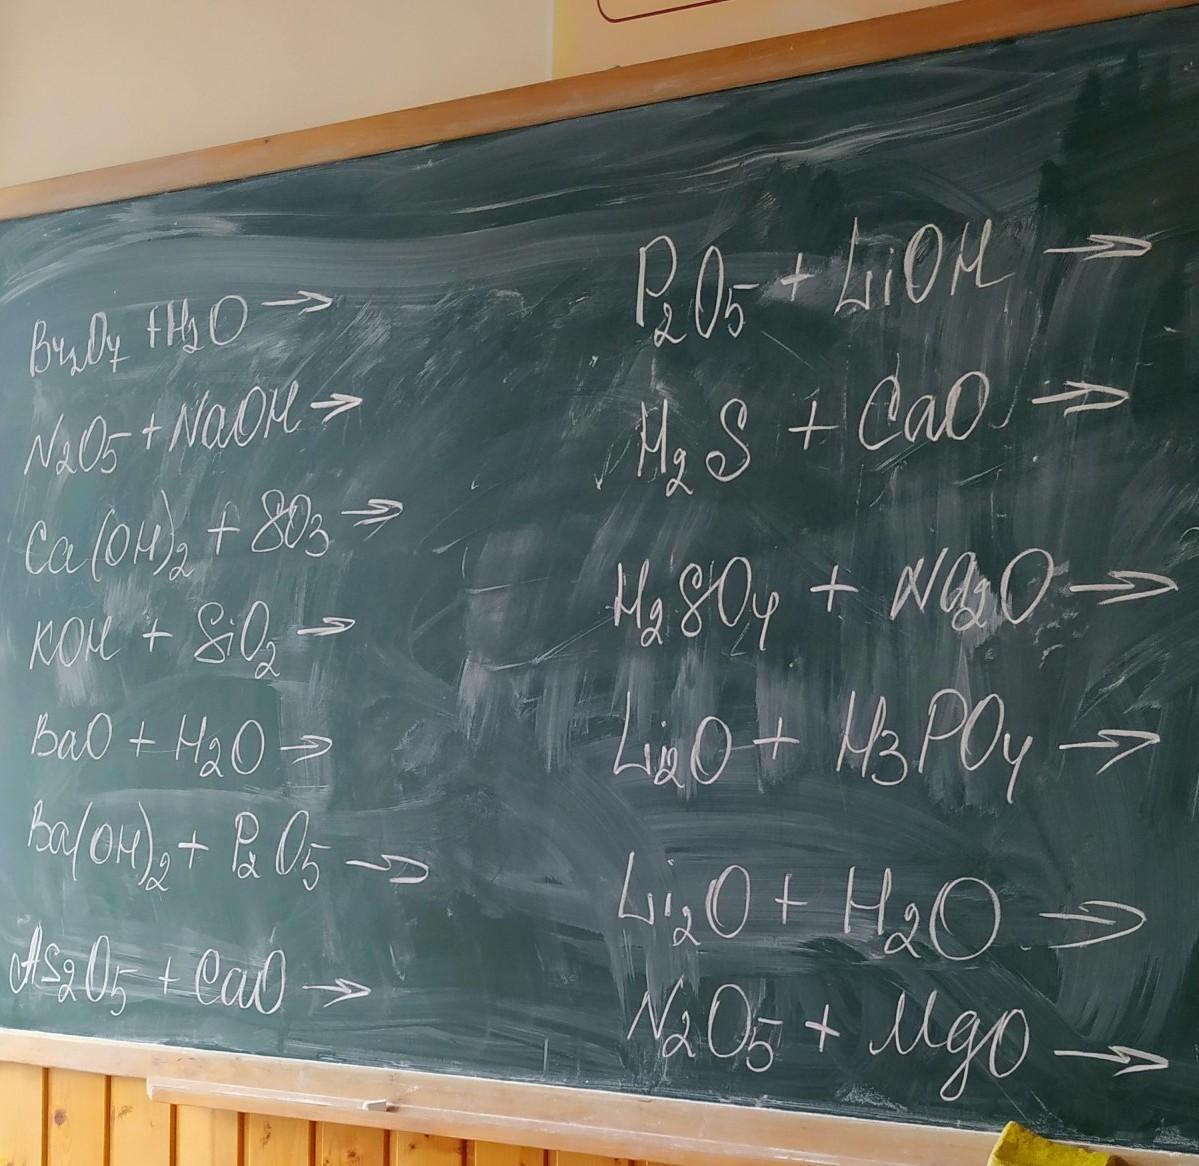 Br₂O₇ + H₂O →
N₂O₅ + NaOH →
Ca(OH)₂ + SO₃ →
KOH + SiO₂ →
BaO + H₂O →
Ba(OH)₂ + P₂O₅ →
As₂O₅ + CaO →
P₂O₅ + LiOH →
H₂S + CaO →
H₂SO₄ + Na₂O →
Li₂O + H₃PO₄ →
Li₂O + H₂O →
N₂O₅ + MgO →